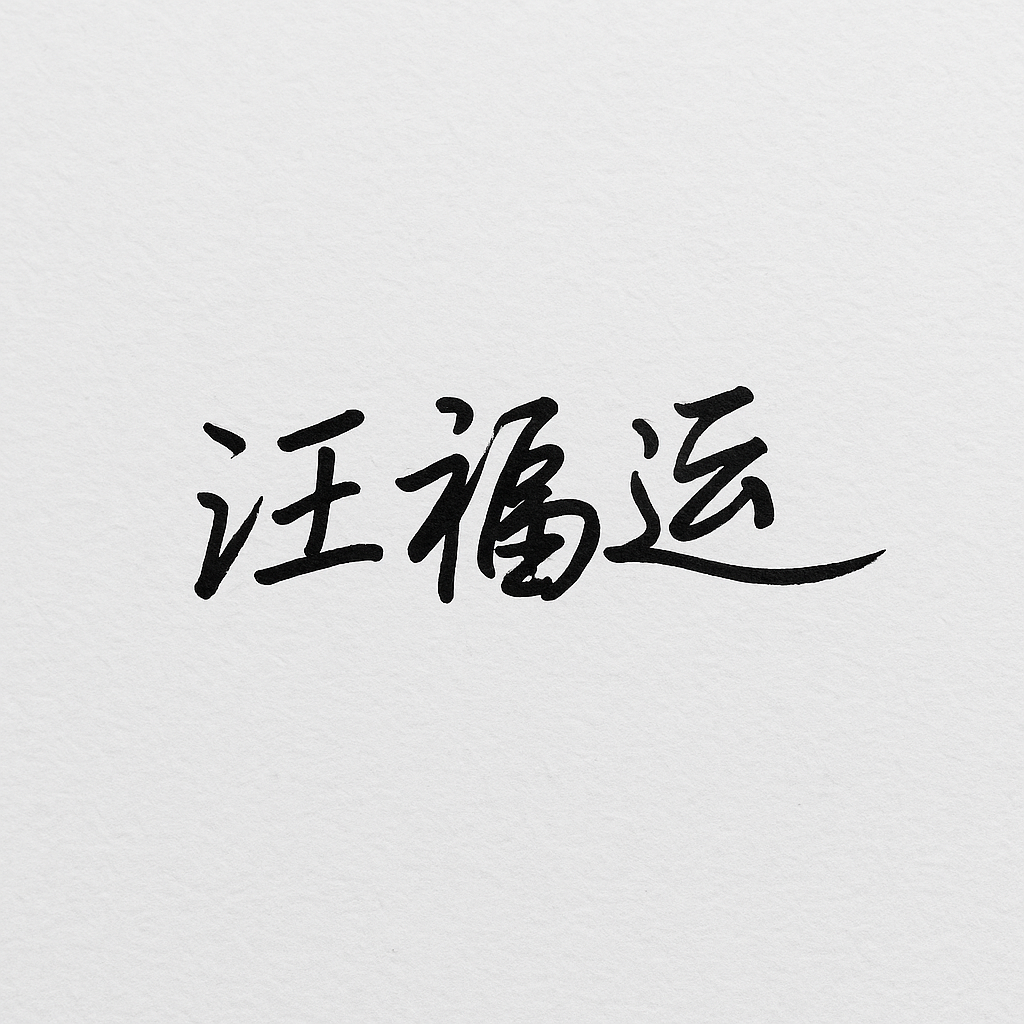 汪福运